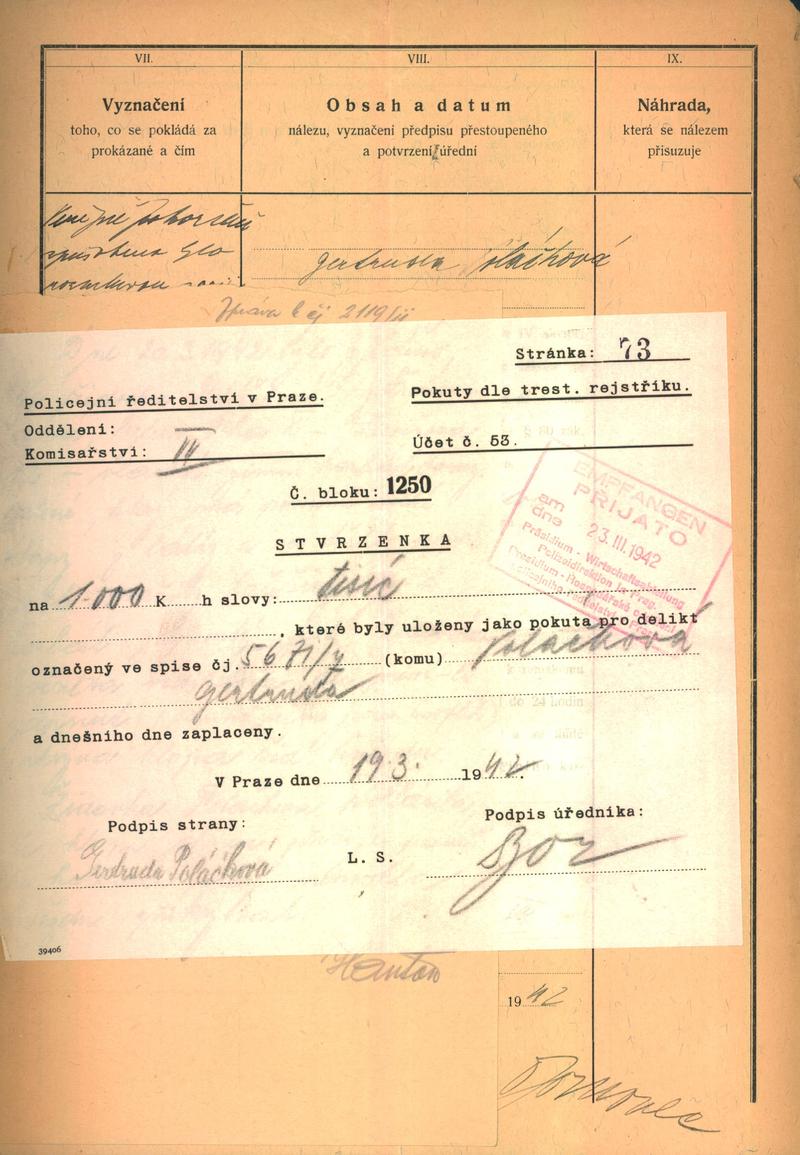 VII.
VIII.
IX.
Vyznačení
toho, co se pokládá za
prokázané a čím
Obsah a datum
nálezu, vyznačení předpisu přestoupeného
a potvrzení úřední
Náhrada,
která se nálezem
přisuzuje
Gertruda Poláchová
Zpráva k čj 2119/
Stránka: 73
Policejní ředitelství v Praze.
Pokuty dle trest. rejstříku.
Oddělení:
Komisařství: III
Účet č. 53.
Č. bloku: 1250
EMPFANGEN
PŘIJATO
am
dne
23. III. 1942
Präsidium - Wirtschaftsabteilung
Polizeidirektion in Prag.
STVRZENKA
na 1.000 K h slovy: tisíc
, které byly uloženy jako pokuta pro delikt
označený ve spise čj. 5671/ (komu) Poláchová
Gertruda
a dnešního dne zaplaceny.
V Praze dne 19 3. 1942.
Podpis strany:
Podpis úředníka:
L. S.
Gertruda Poláchová
39406
1942